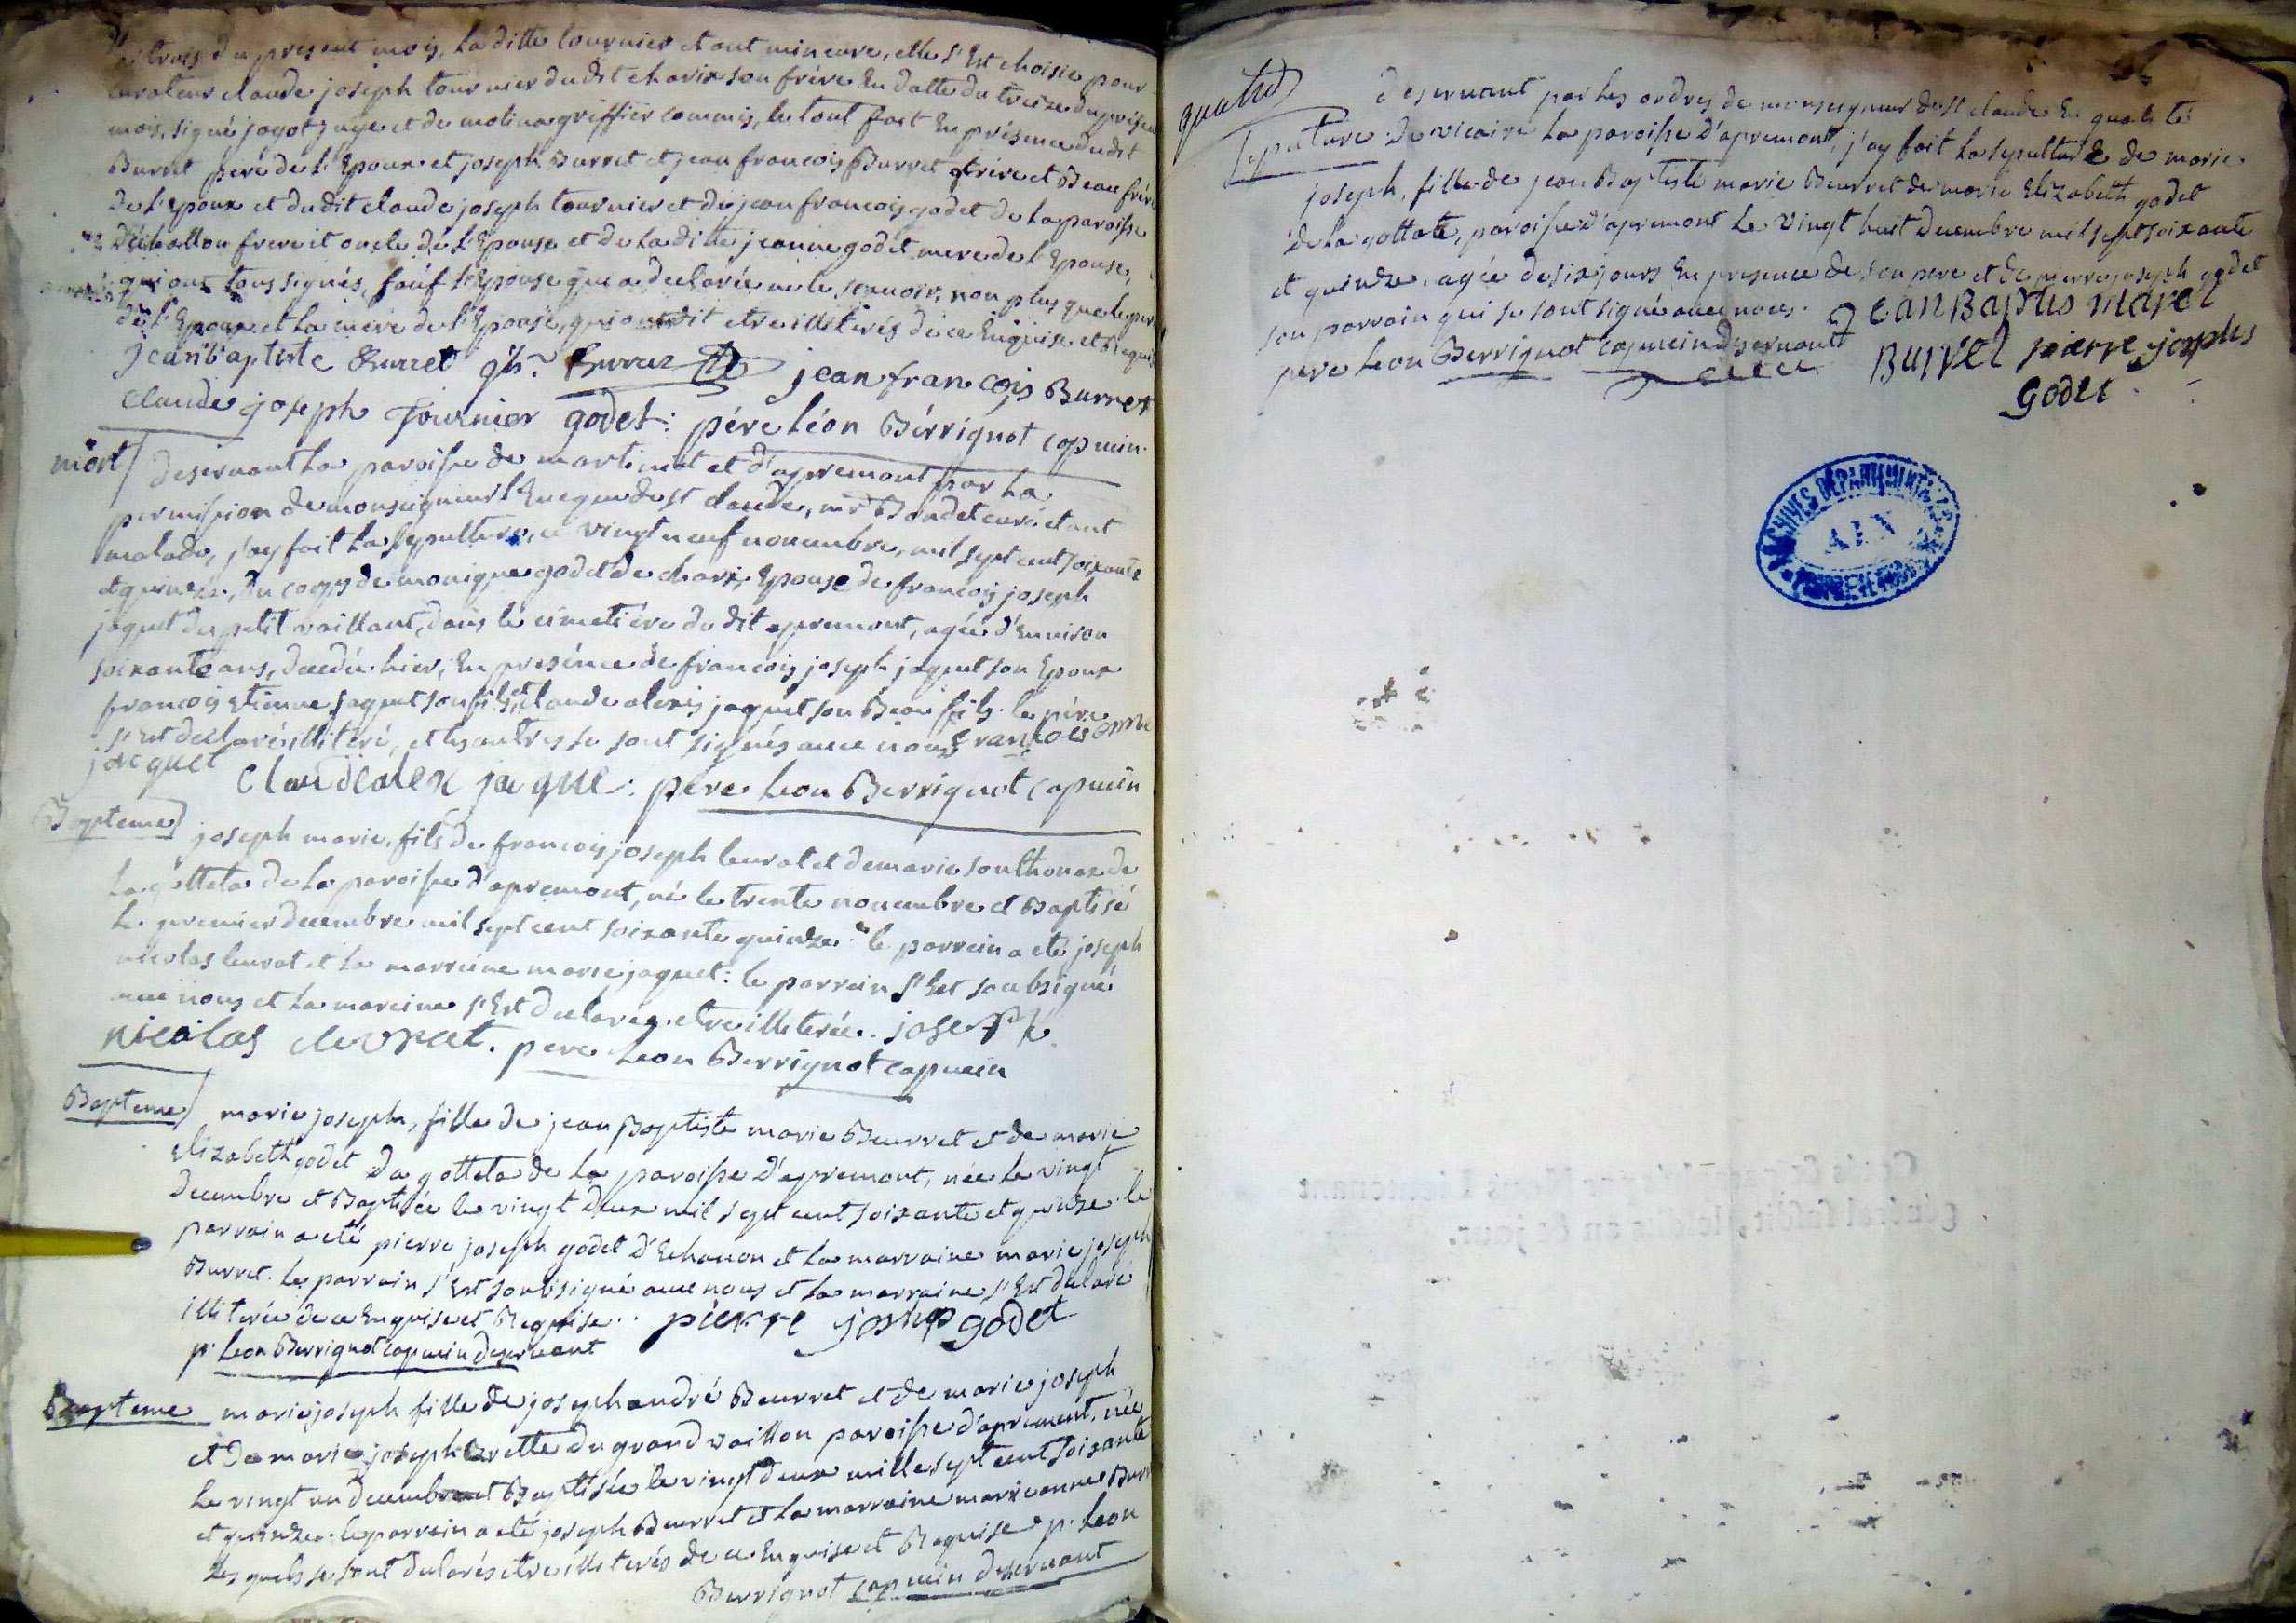 trois du present mois, La ditte tournier etant mineure, elle s'Est choisie pour
curateur claude joseph tournier dudit charix son frére En datte du treize du present
mois, signé jagot juge et de molina griffier commis, le tout fait En présence dudit
Burret pere de l'Epoux et joseph Burret et jean francois Burret frére et Beau frére
de l'Epoux et dudit claude joseph tournier et du jean francois godet de La paroisse
D'échallon frere et oncle de l'Epouse et de La ditte jeanne godet mere de l'Epouse,
qui ont tous signés, sauf l'Epouse que a declarée ne le scavoir, non plus que le pere
de l'Epoux et La mére de l'Epouse, qui ont dit etre illiterés de ce Enquise et Requi
jean baptiste Burret jh. Burret jean francois Burret
claude joseph Tournier godet: pére Léon Bérrignot capucin.
mort Deservant La paroisse de martinat et d'apremont par La
permission de monseigneur l'Eveque de st claude, mr Bondet curé etant
malade, j'ay fait La sepulture, ce vingt neuf novembre, mil sept cent soixante
et quinze, Du corps de monique godet de charix, Epouse de francois joseph
jaquet du petit vaillant, dans le cimetiére du dit apremont, agée d'Environ
soixante ans, decedée hier, En présence de francois joseph jaquet son Epoux
francois Etienne jaquet son fils, et claude alexis jaquet son Beau fils. le pére
s'Est declaré illiteré, et les autres se sont signés avec nous francois
jacquet claudealex jaque: pére Leon Berrignot capucin
Bapteme joseph marie, fils de francois joseph levrat et de marie southonax de
La gotteta de La paroisse d'apremont, né le trente novembre et Baptisé
le premier decembre mil sept cent soixante quinze. le parrein a eté joseph
nicolas levrat et La marreine marie jaquet: le parrain s'Est soubsigné
avec nous et La mareine s'Est declarée etre illiterée. joseph
nicolas levrat. pere Leon Berrignot capucin
Bapteme marie joseph, fille de jean Baptiste marie Beurret et de marie
Elizabeth godet Da gotteta de La paroisse d'apremont, née Le vingt
Decembre et Baptisée le vingt deux mil sept cent soixante et quinze. le
parrain a eté pierre joseph godet d'Echallon et La marraine marie joseph
Burret. Le parrain s'Est soubsigné avec nous et La marraine s'Est declaré
illiterée de ce Enquise et Requise.. pierre josep godet
p. Leon Berrignot capucin deservant
Bapteme marie joseph fille de joseph andré Beurret et de marie joseph
et de marie joseph Brette du grand vaillon paroisse d'apremont, née
Le vingt un decembre et Baptisée le vingt deux mille sept cent soixante
et quinze. le parrain a eté joseph Beurret et La marraine marie anne Burr
Les quels se sont declarés etre illiterés de ce Enquise et Requise p. Leon
Berrignot capucin deservant
quatre
Deservant par Les ordres de monseigneur de st claude En qualité
Sepulture De vicaire La paroisse d'apremont, j'ay fait La sepulture de marie
joseph, fille de jean Baptiste marie Beurret de marie Elizabeth godet
de La gottate, paroisse d'apremont Le vingt huit Decembre mil sept soixante
et quinze, agée de six jours En presence de son pere et de pierre joseph godet
son parrain qui se sont signé avec nous. Jean Baptis marel
pere Leon Berrignot capucin deservant Burrel pierre joseph
Godet
ARCHIVES DÉPARTEMENTALES
AIN